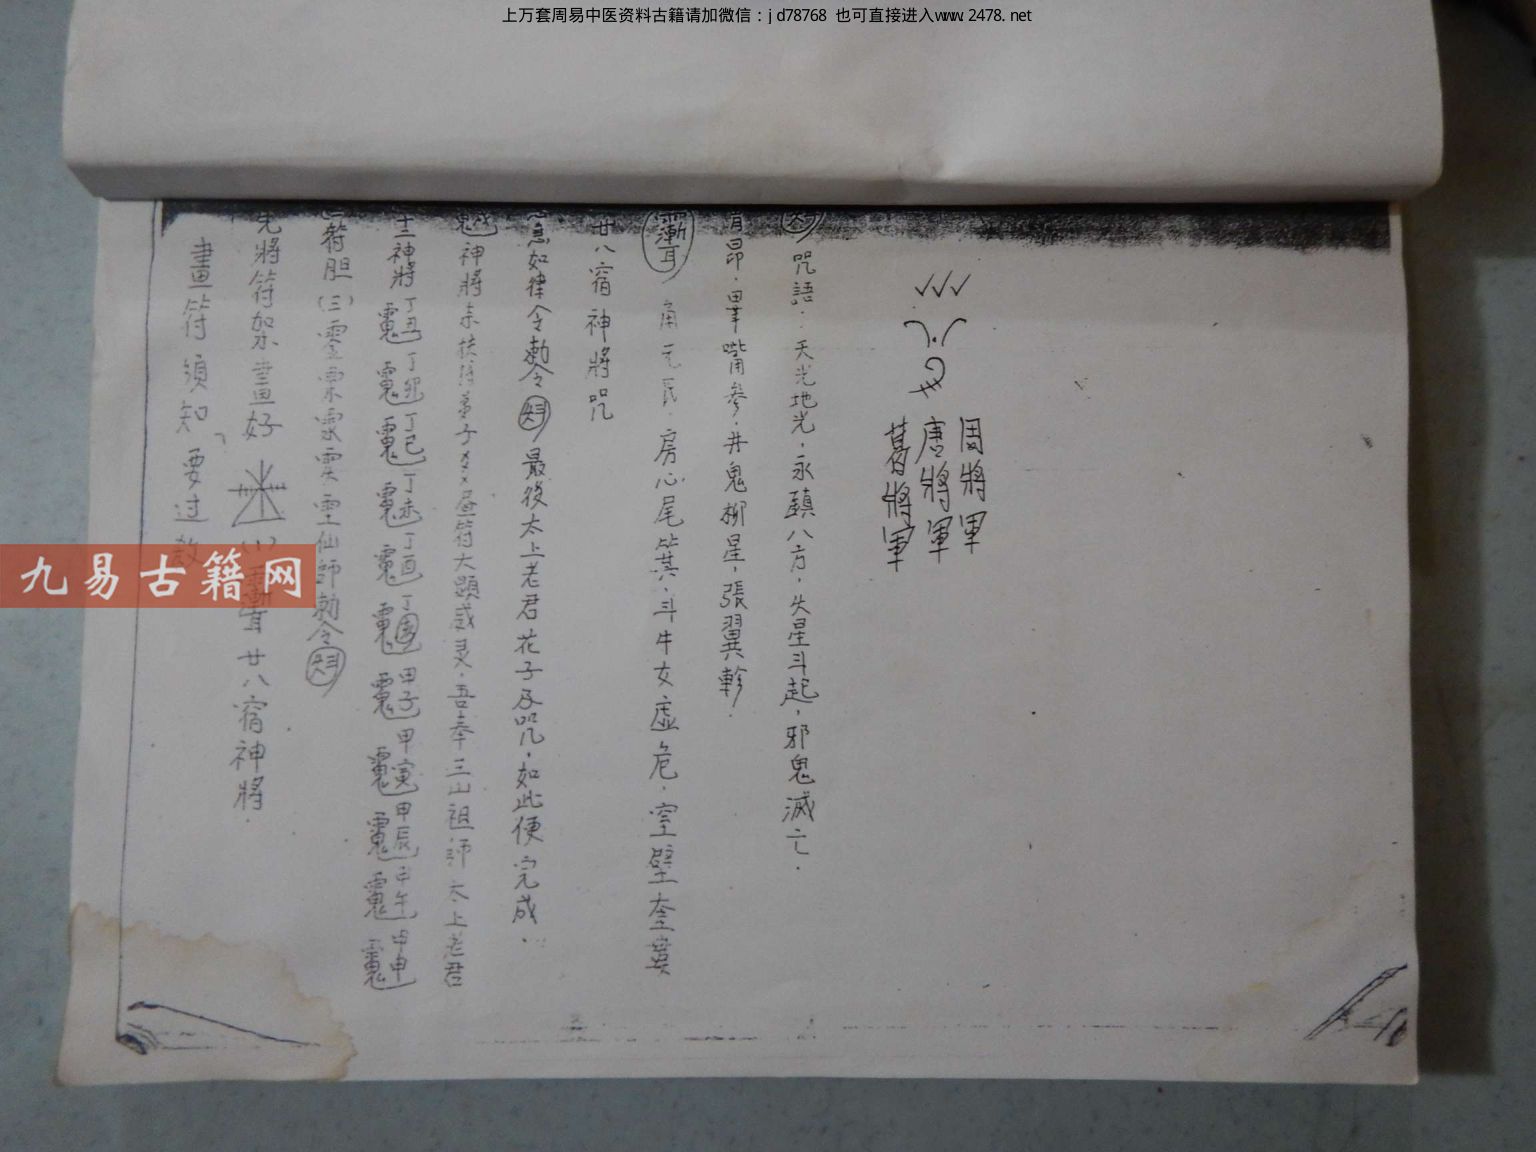 上万套周易中医资料古籍请加微信：jd78768 也可直接进入www.2478.net
畫符須知 要过
先將符架畫好 (1) 廿八宿神將.
符胆 (三) 仙師勅令
神將 丁丑 丁卯 丁巳 丁未 丁酉 丁 甲子 甲寅 甲辰 甲午 甲申
神將 扶持弟子××画符大顯威灵,吾奉三山祖師太上老君
急如律令勅令 最後太上老君花子及咒,如此便完成.
廿八宿神將咒
角亢氐.房心尾箕.斗牛女虛危.室壁奎婁
胃昴.畢嘴參.井鬼柳星,張翼軫.
咒語:天光地光,永鎮八方,火星斗起,邪鬼滅亡.
葛將軍
唐將軍
周將軍
九易古籍网